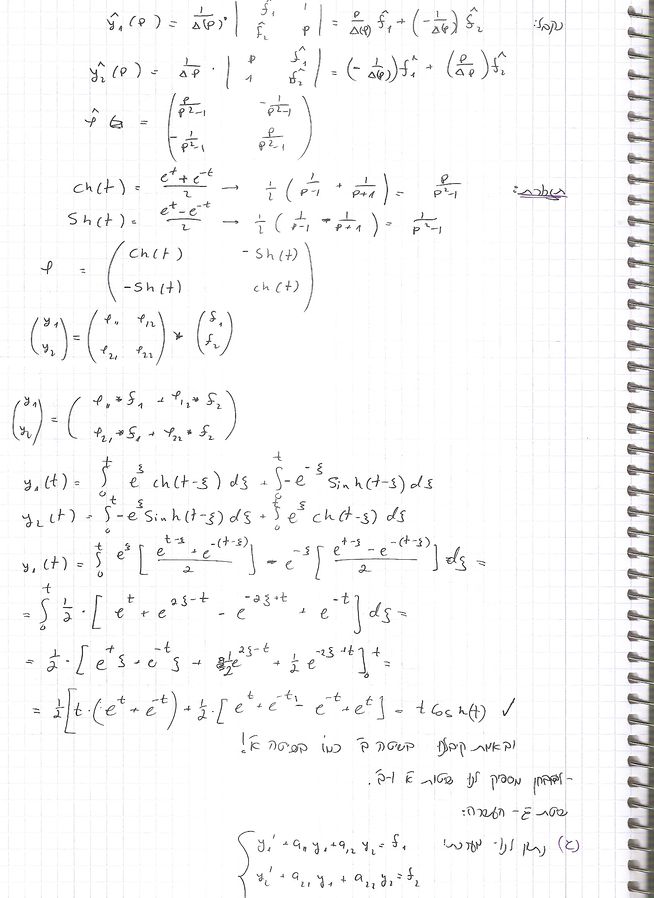 נקבל: ŷ₁(p) = 1/Δ(p) · | f̂₁ 1 ; f̂₂ p | = p/Δ(p) f̂₁ + (-1/Δ(p)) f̂₂
ŷ₂(p) = 1/Δp · | p f̂₁ ; 1 f̂₂ | = (-1/Δ(p)) f̂₁ + (p/Δp) f̂₂
φ̂ = ( p/(p²-1) -1/(p²-1) ; -1/(p²-1) p/(p²-1) )
תזכורת: ch(t) = (e^t + e^-t)/2 → 1/2 ( 1/(p-1) + 1/(p+1) ) = p/(p²-1)
Sh(t) = (e^t - e^-t)/2 → 1/2 ( 1/(p-1) - 1/(p+1) ) = 1/(p²-1)
φ = ( ch(t) -Sh(t) ; -Sh(t) ch(t) )
( y₁ ; y₂ ) = ( φ₁₁ φ₁₂ ; φ₂₁ φ₂₂ ) * ( f₁ ; f₂ )
( y₁ ; y₂ ) = ( φ₁₁*f₁ + φ₁₂*f₂ ; φ₂₁*f₁ + φ₂₂*f₂ )
y₁(t) = ∫₀^t e^ξ ch(t-ξ) dξ + ∫₀^t -e^-ξ Sinh(t-ξ) dξ
y₂(t) = ∫₀^t -e^ξ Sinh(t-ξ) dξ + ∫₀^t e^ξ ch(t-ξ) dξ
y₁(t) = ∫₀^t e^ξ [ (e^(t-ξ) + e^-(t-ξ))/2 ] - e^-ξ [ (e^(t-ξ) - e^-(t-ξ))/2 ] dξ =
= ∫₀^t 1/2 · [ e^t + e^(2ξ-t) - e^(-2ξ+t) + e^-t ] dξ =
= 1/2 · [ e^t ξ + e^-t ξ + 1/2 e^(2ξ-t) + 1/2 e^(-2ξ+t) ]₀^t =
= 1/2 [ t·(e^t + e^-t) + 1/2 · [ e^t + e^-t - e^-t - e^t ] = t Cosh(t) ✓
ובאמת קיבלנו בשיטה ב' כמו בשיטה א'!
-ובבחן מספיק לנו שיטות א' ו-ב'.
שיטה ג' - העשרה:
(ג) נתון לנו { y₁' + a₁₁y₁ + a₁₂y₂ = f₁
y₂' + a₂₁y₁ + a₂₂y₂ = f₂